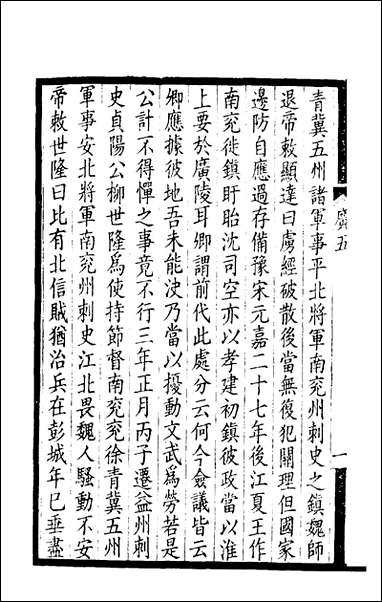 青冀五州諸軍事平北將軍南兖州刺史之鎮魏師
退帝敕顯達曰虜經破散後當無復犯關理但國家
邊防自應過存備豫宋元嘉二十七年後江夏王作
南兖徙鎮盱眙沈司空亦以孝建初鎮彼政當以淮
上要於廣陵耳卿謂前代此處分云何今僉議皆云
卿應據彼地吾未能決乃當以擾動文武爲勞若是
公計不得憚之事竟不行三年正月丙子遷益州刺
史貞陽公柳世隆爲使持節督南兖兖徐青冀五州
軍事安北將軍南兖州刺史江北畏魏人騷動不安
帝敕世隆曰比有北信賊猶治兵在彭城年已垂盡
廣五
一